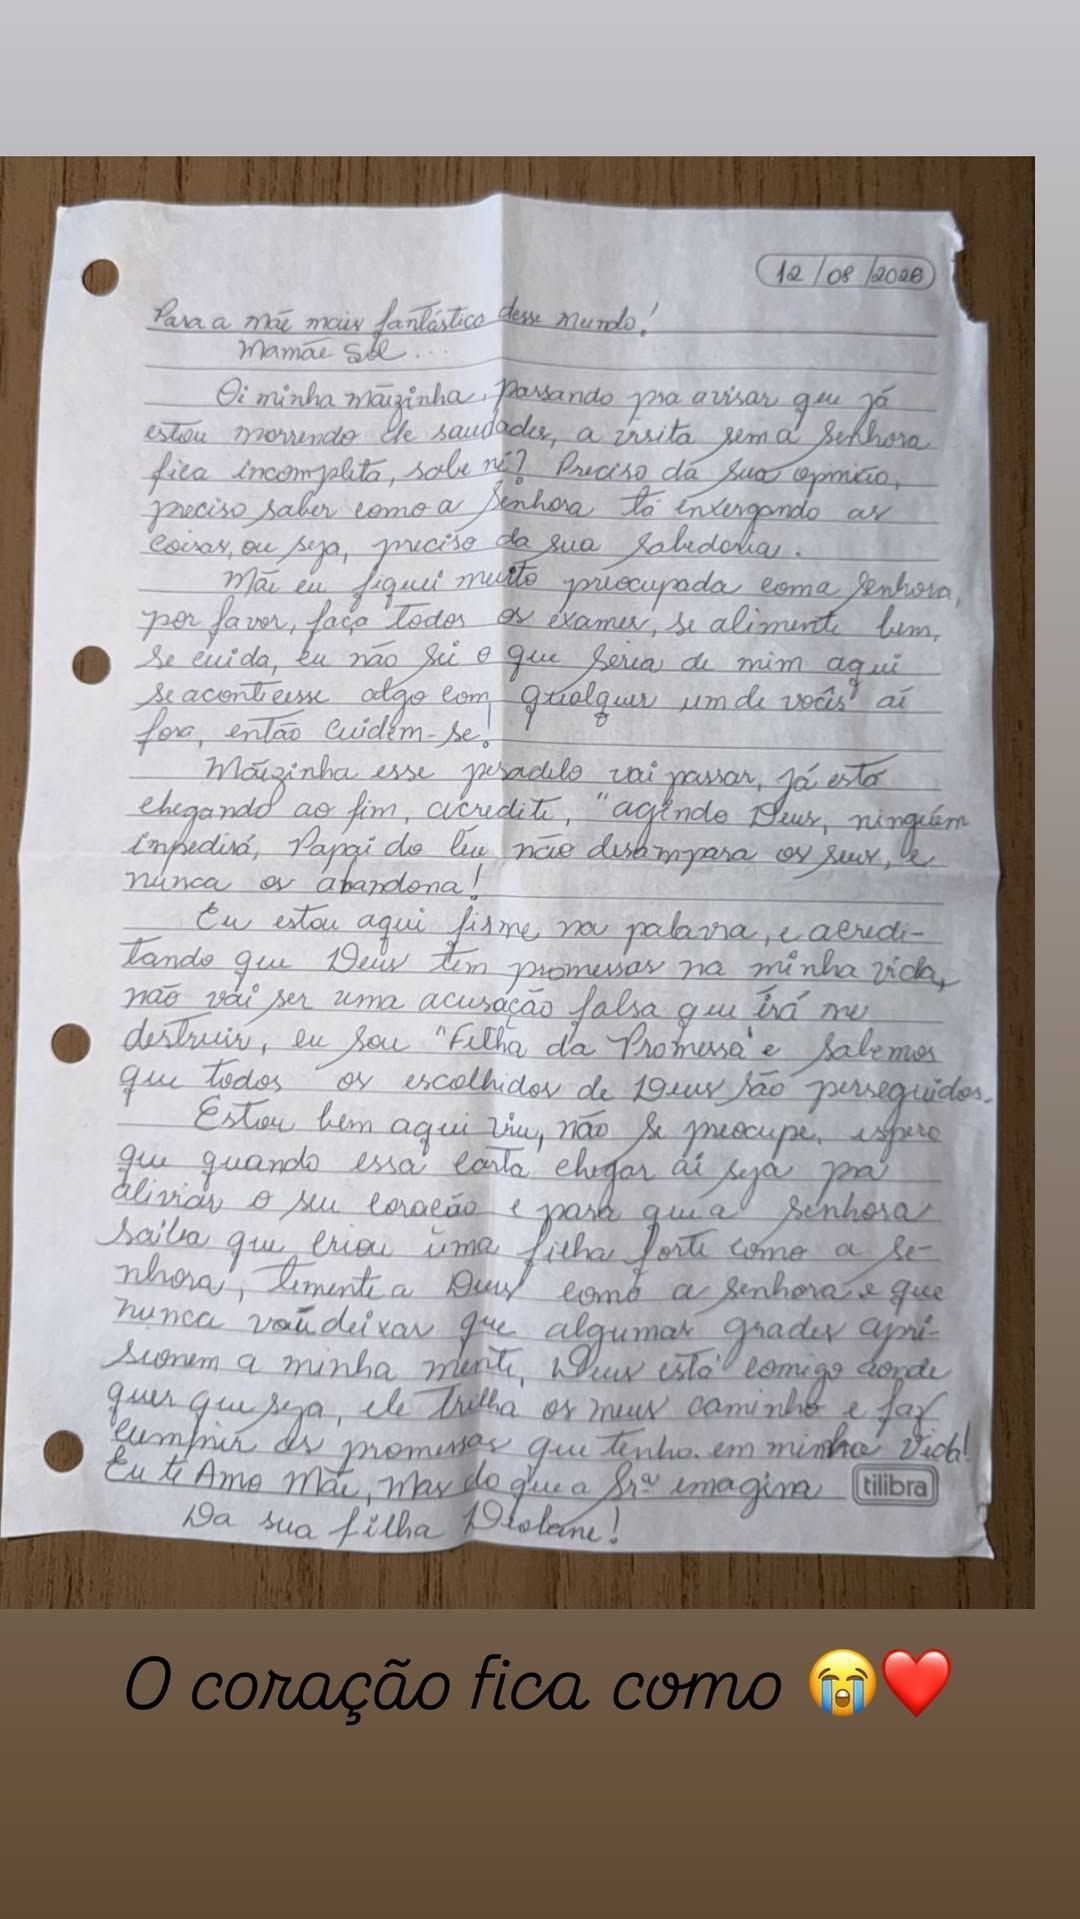 12/08/2026
Para a mãe mais fantástica desse mundo!
Mamãe Sol...
Oi minha mãezinha, passando pra avisar que já
estou morrendo de saudades, a visita sem a Senhora
fica incompleta, sabe né? Preciso da sua opinião,
preciso saber como a Senhora tá enxergando as
coisas, ou seja, preciso da sua Sabedoria.
Mãe eu fiquei muito preocupada com a Senhora,
por favor, faça todos os exames, se alimente bem,
se cuida, eu não sei o que seria de mim aqui
se acontecesse algo com qualquer um de vocês aí
fora, então cuidem-se!
Mãezinha esse pesadelo vai passar, já está
chegando ao fim, acredite, "agindo Deus, ninguém
impedirá, Papai do Céu não desampara os seus, e
nunca os abandona!
Eu estou aqui firme na palavra, e acredi-
tando que Deus tem promessas na minha vida,
não vai ser uma acusação falsa que irá me
destruir, eu sou "Filha da Promessa" e sabemos
que todos os escolhidos de Deus são perseguidos.
Estou bem aqui viu, não se preocupe, espero
que quando essa carta chegar aí seja pra
aliviar o seu coração e para que a Senhora
saiba que criou uma filha forte como a Se-
nhora, temente a Deus como a senhora e que
nunca vai deixar que algumas grades apri-
sionem a minha mente, Deus está comigo aonde
quer que seja, ele trilha os meus caminho e faz
cumprir as promessas que tenho em minha Vida!
Eu te Amo Mãe, mas do que a Srª imagina
tilibra
Da sua filha
O coração fica como 😭❤️